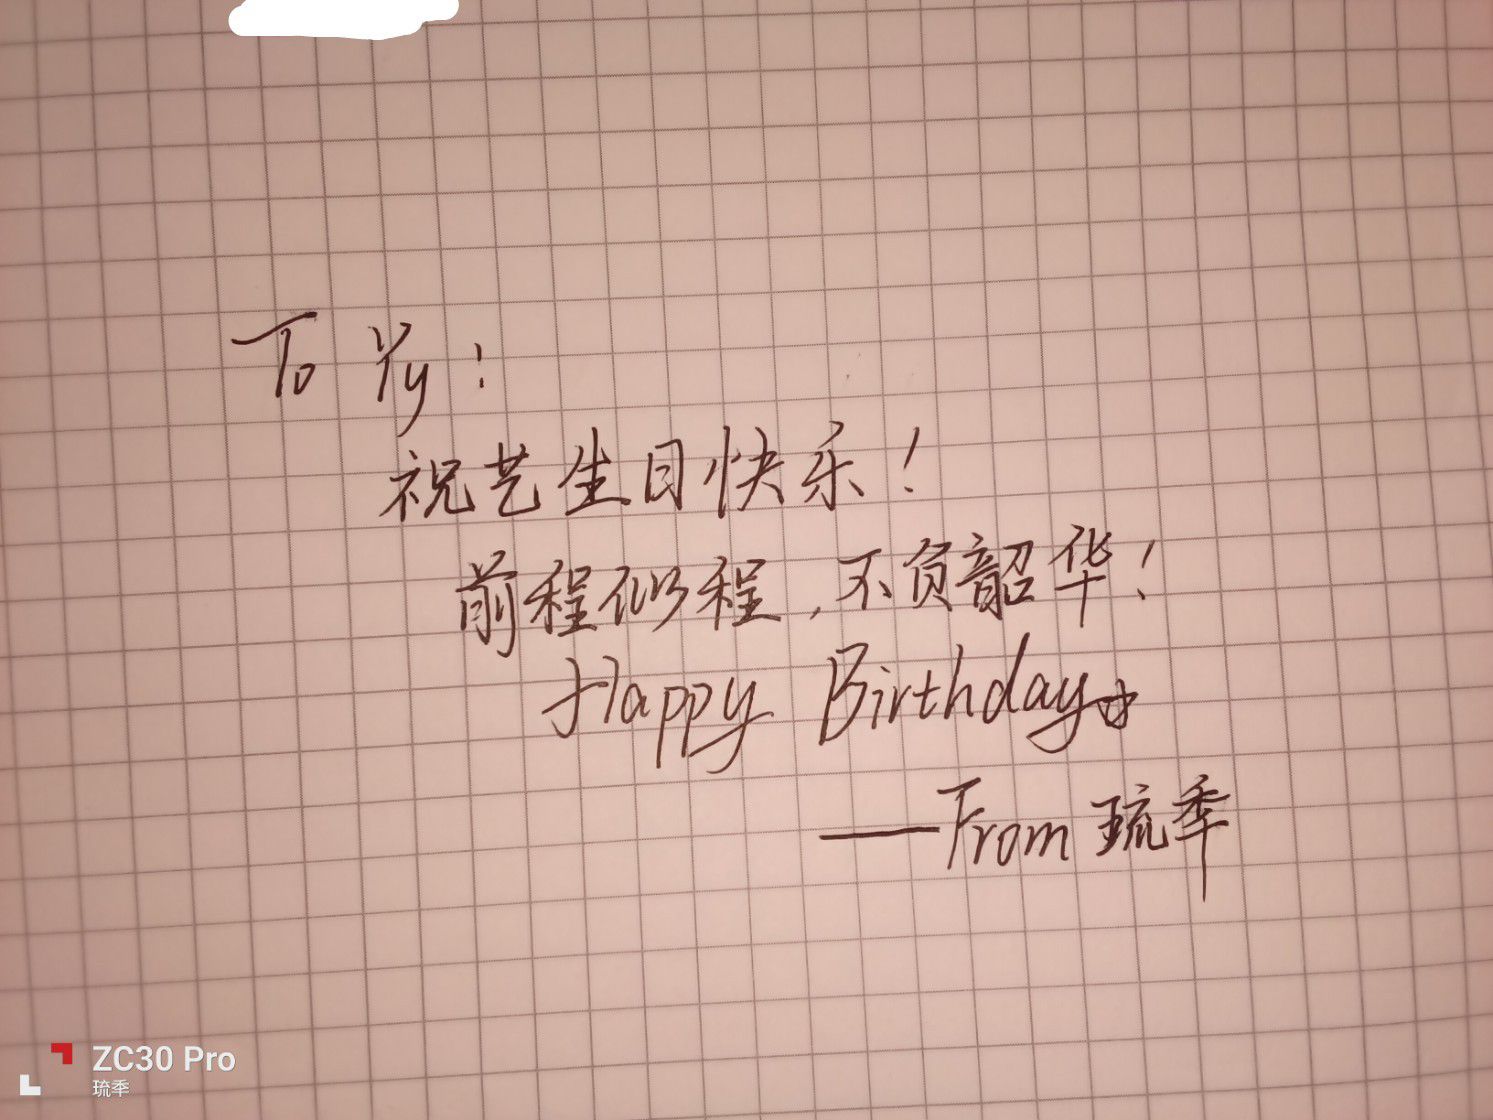 To Yy:
祝艺生日快乐!
前程似程,不负韶华!
Happy Birthday
——From 琉季
ZC30 Pro
琉季